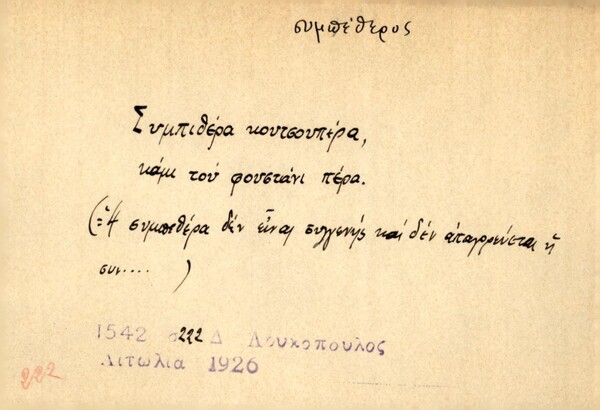 συμπέθερος
Συμπιθέρα κουτσουπέρα,
κάμι τού φουστάνι πέρα.
(=Ἡ συμπεθέρα δέν εἶναι συγγενής καί δέν ἀπαγορεύεται ἡ
συν.... )
1542 σ222 Δ Λουκοπουλος
Αιτωλια 1926
222